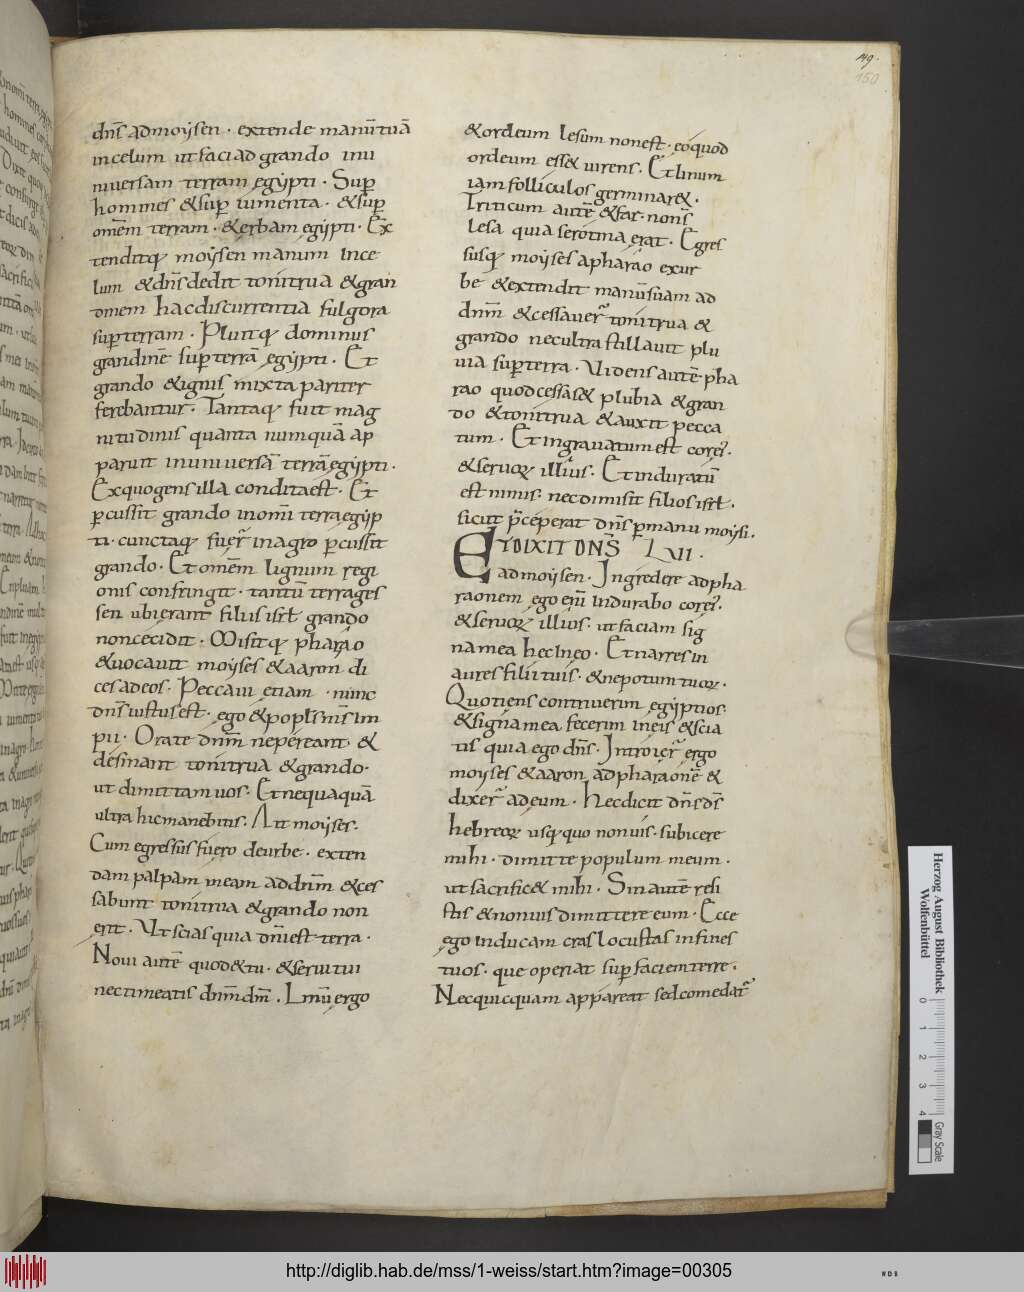 149.
150
dn̄s admoẏsen · extende manū tuā
incelum ut faciad grando inu
niuersam terram egẏpti · Sup̱
homines & sup̱ iumenta · & sup̱
om̄em terram · & erbam egẏpti · Ex
tenditq; moẏsen manum ince
lum & dn̄s dedit tonitrua & gran
dinem hac discurrentia fulgora
sup̱ terram · Pluitq; dominus
grandinē sup̱ terrā egẏpti · Et
grando & ignis mixta pariter
ferebantur · Tantaq; fuit mag
nitudinis quanta numquā ap
paruit inuniuersā terrā egẏpti ·
Ex quo gens illa condita est · Et
p̱cussit grando in om̄i terra egẏp
ti · cunctaq; fuer̄ in agro p̱cussit
grando · Et om̄em lignum regi
onis confringit · tantū terra ges
sen ubi erant filii isrł grando
non cecidit · Misitq; pharao
& uocauit moẏses & aaron di
ces ad eos · Peccaui etiam · nunc
dn̄s iustus est · ego & popls m̄s im
pii · Orate dnm̄ ne pereant · &
desinant tonitrua & grando ·
ut dimittam uos · Et nequaquā
ultra hic manebitis · Ait moẏses ·
Cum egressus fuero de urbe · exten
dam palpam meam ad dnm̄ & ces
sabunt tonitrua & grando non
erit · Ut scias quia dnī est terra ·
Noui autē quod & tu · & serui tui
nec timeatis dnm̄ dm̄ · Linū ergo
& ordeum lesum non est · eo quod
ordeum ess& uirens · Et linum
iam folliculos germinar& ·
Triticum autē & far · non s̄
lesa quia serotina erat · Egres
susq; moẏses a pharao exur
be & extendit manū suam ad
dnm̄ & cessauer̄ tonitrua &
grando nec ultra stillauit plu
uia sup̱ terra · Uidens autē pha
rao quod cessass& plubia & gran
do & tonitrua & auxit pecca
tum · Et ingrauatum est cor ei ·
& seruoꝝ illius · Et induratū
est nimis · nec dimisit filios isrł ·
sicut p̄ceperat dn̄s p̱ manu moẏsi ·
ET DIXIT DN̄S LVII ·
ad moẏsen · Ingredere ad pha
raonem ego enī indurabo cor ei ·
& seruoꝝ illius · ut faciam sig
na mea hec in eo · Et narres in
aures filii tuis · & nepotum tuoꝝ ·
Quotiens contriuerim egẏptios
& signa mea fecerim in eis & scia
tis quia ego dn̄s · Introier̄ ergo
moyses & aaron ad pharaonē &
dixer̄ ad eum · hec dicit dn̄s ds̄
hebreoꝝ usq; quo non uis · subicere
mihi · dimitte populum meum ·
ut sacrific& mihi · Sin autē resi
stis & non uis dimittere eum · Ecce
ego inducam cras locustas in fines
tuos · que operiat sup̱ faciem terre ·
Nec quicquam appareat sed comedat̄
Herzog August Bibliothek
Wolfenbüttel
0 1 2 3 4
Gray Scale
http://diglib.hab.de/mss/1-weiss/start.htm?image=00305